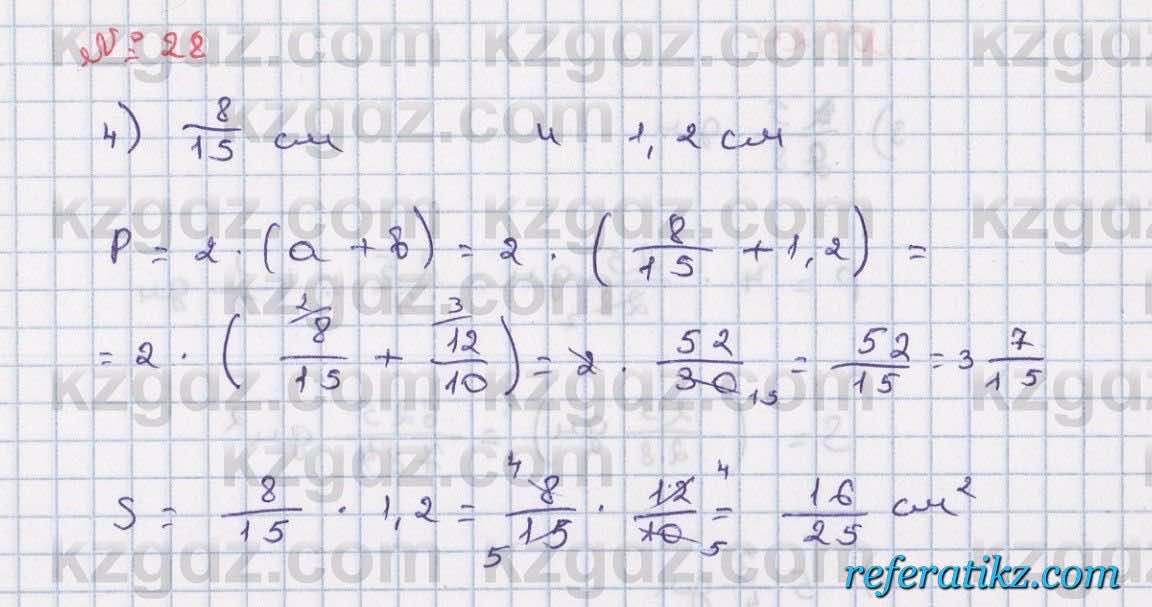 № 28
4) 8/15 см и 1,2 см
P = 2 · (a + b) = 2 · (8/15 + 1,2) =
= 2 · (8/15 ^2 + 12/10 ^3) = 2 · 52/30 15 = 52/15 = 3 7/15
S = 8/15 · 1,2 = 4 8/15 5 · 12/10 4 5 = 16/25 см²
kzgdz.com
referatikz.com